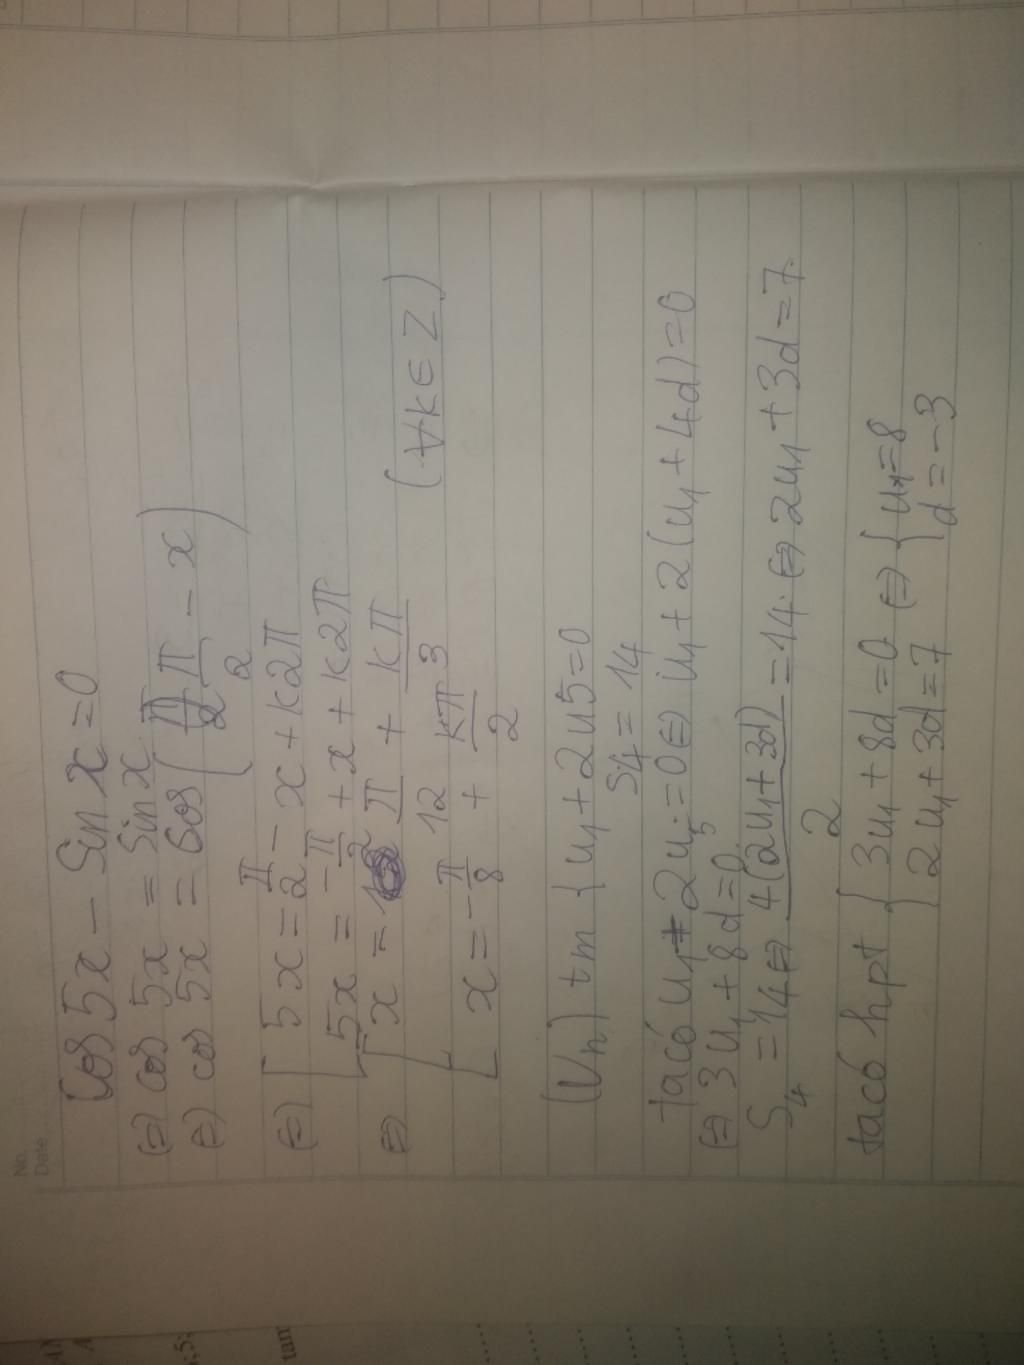 No.
Date
Cos 5x - Sin x = 0
(=) cos 5x = sin x
(=) cos 5x = cos (π/2 - x)
(=) [ 5x = π/2 - x + k2π
[ 5x = -π/2 + x + k2π
(=) [ x = π/12 + kπ/3
[ x = -π/8 + kπ/2 (∀k∈Z)
(Un) tm { u1 + 2u5 = 0
S4 = 14
ta có u1 + 2u5 = 0 (=) u1 + 2(u1 + 4d) = 0
(=) 3u1 + 8d = 0
S4 = 14 (=) 4(2u1 + 3d)/2 = 14. (=) 2u1 + 3d = 7.
ta có hpt { 3u1 + 8d = 0 (=) { u1 = 8
{ 2u1 + 3d = 7 { d = -3
5;
tan